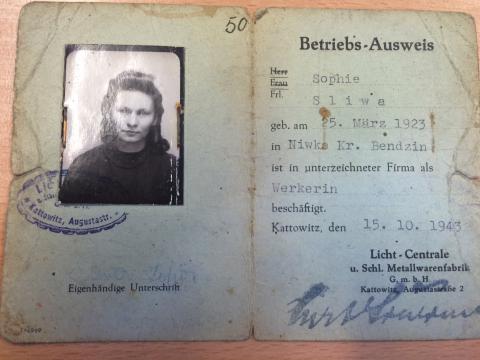 50
Lic
Kattowitz, Augustastr.
Eigenhändige Unterschrift
Betriebs-Ausweis
Herr
Frau Sophie
Frl.
Sliwa
geb. am 25. März 1923
in Niwka Kr. Bendzin
ist in unterzeichneter Firma als
Werkerin
beschäftigt.
Kattowitz, den 15. 10. 1943
Licht-Centrale
u. Schl. Metallwarenfabrik
G. m. b. H
Kattowitz, Augustastraße 2